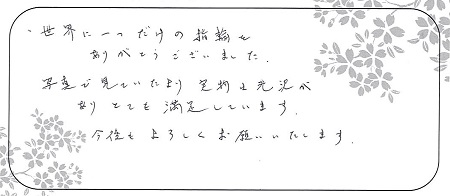 ・世界に一つだけの指輪を
ありがとうございました.
写真で見ていたより実物は光沢が
あり とても満足しています.
今後も よろしく お願いいたします.